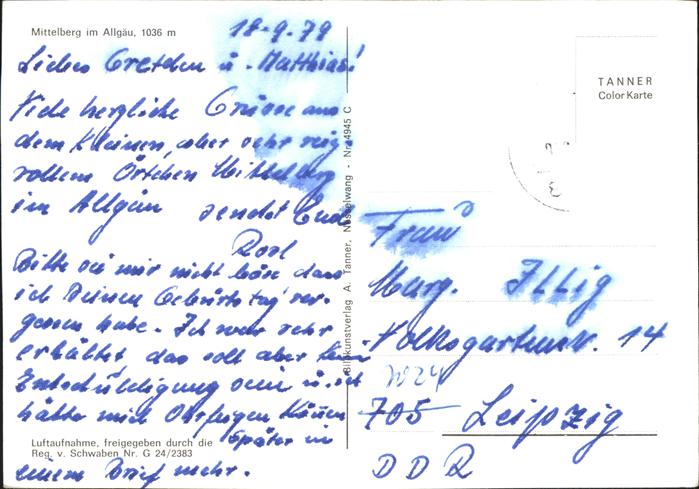 Mittelberg im Allgäu, 1036 m
18-9.79
Liebes Gretchen u. Matthias!
Viele herzliche Grüsse aus
dem kleinen, aber sehr reiz-
vollem Örtchen Mittelberg
im Allgäu sendet Euch
Rosl
Bitte sei mir nicht böse dass
ich Deinen Geburtstag ver-
gessen habe. Ich war sehr
erkältet das soll aber keine
Entschuldigung sein u. ich
hätte mich Ohrfeigen können
Später in
einem Brief mehr.
Luftaufnahme, freigegeben durch die
Reg. v. Schwaben Nr. G 24/2383
A. Tanner, Nesselwang - Nr. 4945 C
TANNER
Color Karte
Frau
Marg. Illig
Volksgartenstr. 14
7024
705 Leipzig
DDR